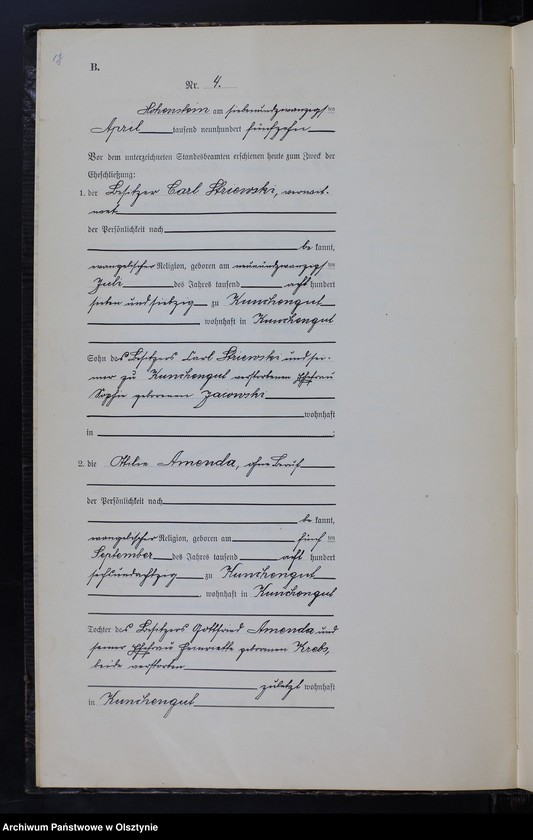 B.
Nr. 4.
Hohenstein am siebenundzwanzigsten
April tausend neunhundert fünfzehn
Vor dem unterzeichneten Standesbeamten erschienen heute zum Zweck der
Eheschließung:
1. der Besitzer Carl Striewski, verwit-
wet
der Persönlichkeit nach
be kannt,
evangelischer Religion, geboren am neunundzwanzigsten
Juli des Jahres tausend acht hundert
sieben und siebzig zu Kunchengut
wohnhaft in Kunchengut
Sohn des Besitzers Carl Striewski und sei-
ner zu Kunchengut verstorbenen Ehefrau
Sophie geborenen Jacowski
wohnhaft
in ;
2. die Ottilie Amenda, ohne Beruf
der Persönlichkeit nach
be kannt,
evangelischer Religion, geboren am fünf ten
September des Jahres tausend acht hundert
sechsundachtzig zu Kunchengut
, wohnhaft in Kunchengut
Tochter des Besitzers Gottfried Amenda und
seiner Ehefrau Henriette geborenen Krebs,
beide verstorben
zuletzt wohnhaft
in Kunchengut
Archiwum Państwowe w Olsztynie